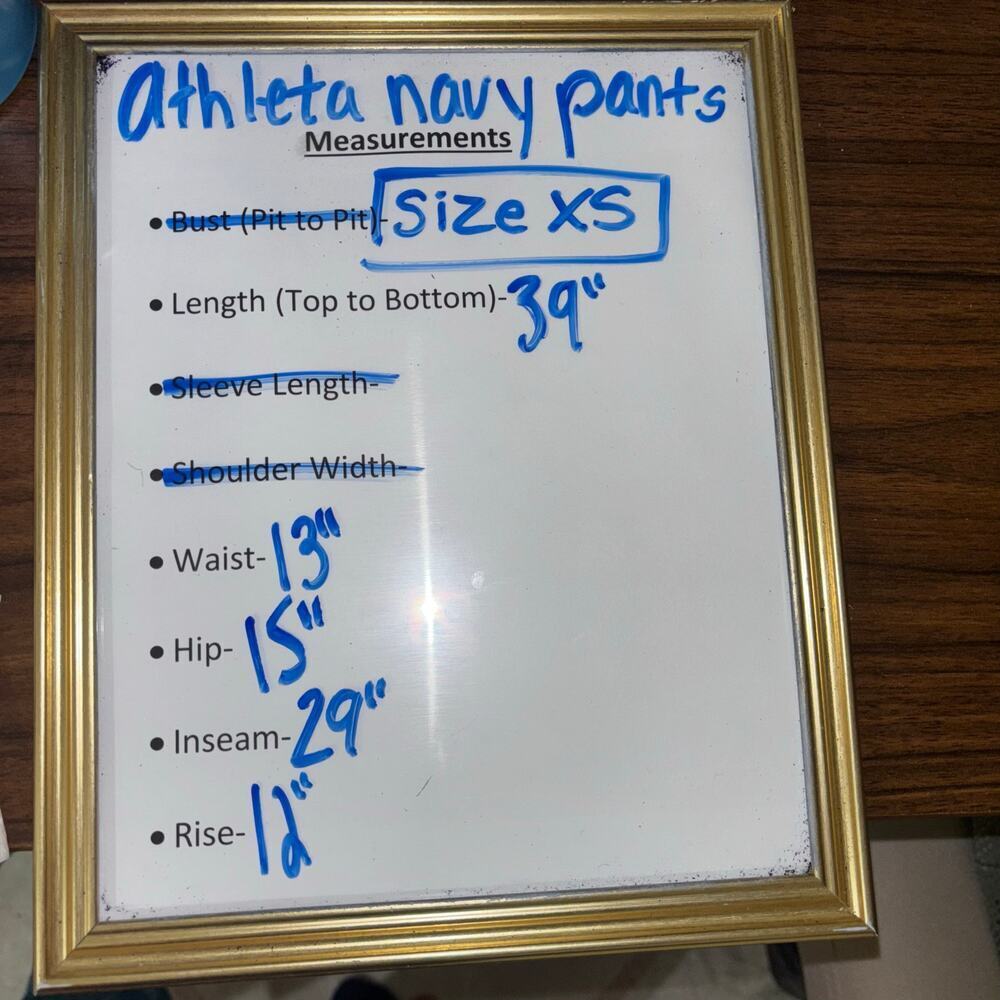 athleta navy pants
Measurements
• Bust (Pit to Pit)- Size XS
• Length (Top to Bottom)- 39"
• Sleeve Length-
• Shoulder Width-
• Waist- 13"
• Hip- 15"
• Inseam- 29"
• Rise- 12"